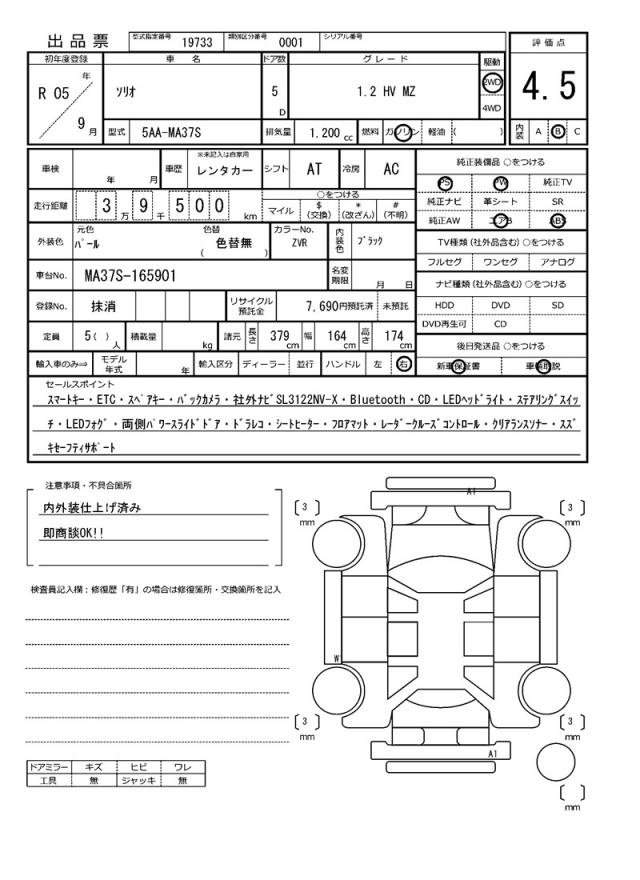 出品票 型式指定番号 19733 類別区分番号 0001 シリアル番号
評価点
初年度登録 車名 ドア数 グレード 駆動
R 05 年 9 月 ソリオ 5 D 1.2 HV MZ 2WD 4WD 4.5
型式 5AA-MA37S 排気量 1.200 cc 燃料 ガソリン 軽油 ( ) 内装 A B C
車検 年 月 車歴 ※未記入は自家用 レンタカー シフト AT 冷房 AC
純正装備品 ○をつける
PS PW 純正TV
走行距離 3 万 9 千 5 0 0 km ○をつける
マイル $ (交換) * (改ざん) # (不明)
純正ナビ 革シート SR
純正AW エアB ABS
外装色 元色 パール 色替 色替無 ( ) カラーNo. ZVR 内装色 ブラック
TV種類 (社外品含む) ○をつける
フルセグ ワンセグ アナログ
車台No. MA37S-165901 名変期限 月 日
ナビ種類 (社外品含む) ○をつける
登録No. 抹消 リサイクル預託金 7,690円預託済 未預託
HDD DVD SD
DVD再生可 CD
定員 5 ( ) 人 積載量 kg 諸元 長さ 379 cm 幅 164 cm 高さ 174 cm
後日発送品 ○をつける
輸入車のみ⇒ モデル年式 年 輸入区分 ディーラー 並行 ハンドル 左 右
新車保証書 車輌取説
セールスポイント
スマートキー・ETC・スペアキー・バックカメラ・社外ナビSL3122NV-X・Bluetooth・CD・LEDヘッドライト・ステアリングスイッ
チ・LEDフォグ・両側パワースライドドア・ドラレコ・シートヒーター・フロアマット・レーダークルーズコントロール・クリアランスソナー・スズ
キセーフティサポート
注意事項・不具合箇所
内外装仕上げ済み
即商談OK!!
検査員記入欄:修復歴「有」の場合は修復箇所・交換箇所を記入
A1
3 mm
3 mm
W
3 mm
3 mm
A1
mm
ドアミラー キズ ヒビ ワレ
工具 無 ジャッキ 無